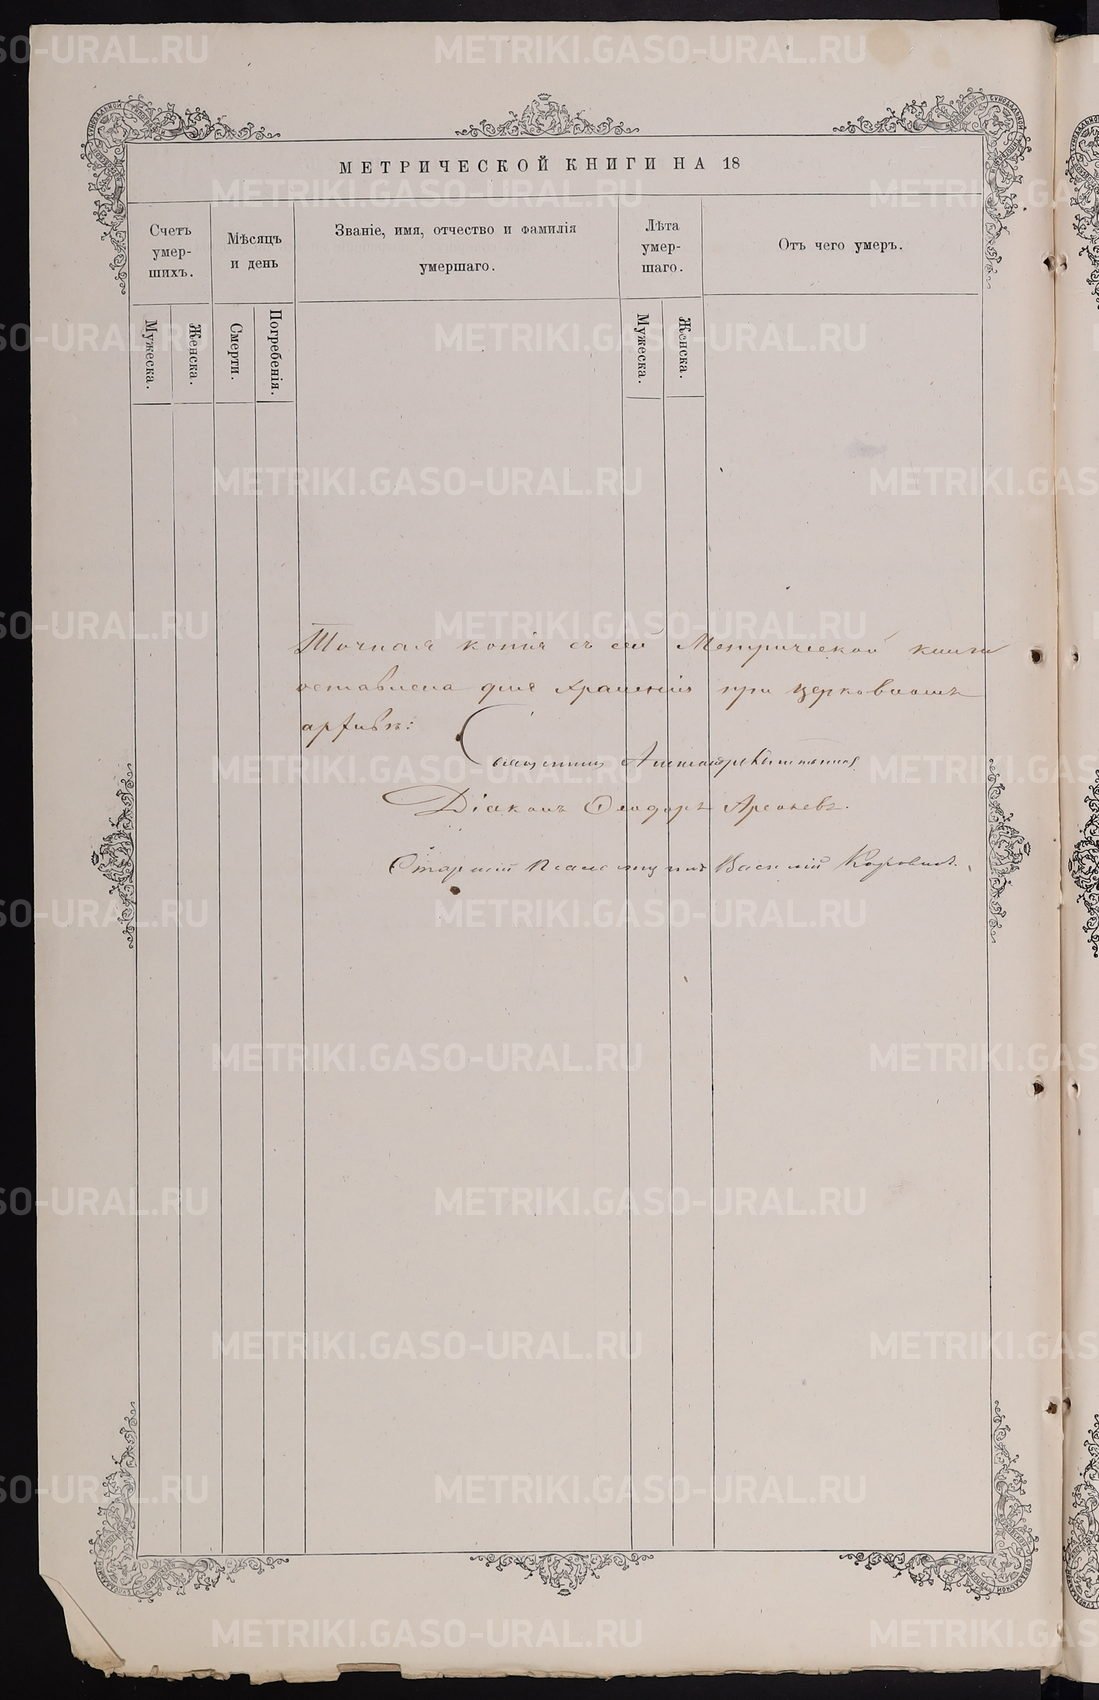 МЕТРИЧЕСКОЙ КНИГИ НА 18
Счетъ умер-шихъ.
Мѣсяцъ и день
Званіе, имя, отчество и фамилія умершаго.
Лѣта умер-шаго.
Отъ чего умеръ.
Мужеска.
Женска.
Смерти.
Погребенія.
Мужеска.
Женска.
Точная копія съ сей Метрической книги
оставлена для храненія при церковномъ
архивѣ:
Священникъ
Діаконъ Ѳеодоръ
Старшій Псаломщикъ Василій Коровинъ.
METRIKI.GASO-URAL.RU